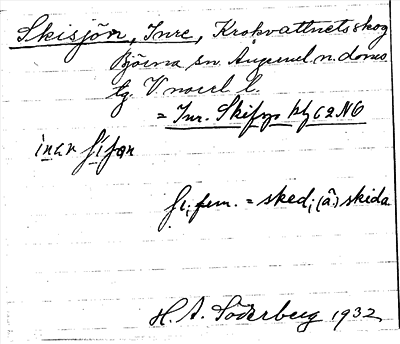 Skisjön, Inre, Krokvattnets skog
Björna sn. Ångerml. n. doms.
tg. V.norrl. l.
= Inr. Skisjö kbl 62 NO
fem. = sked, (å) skida
H. A. Söderberg 1932